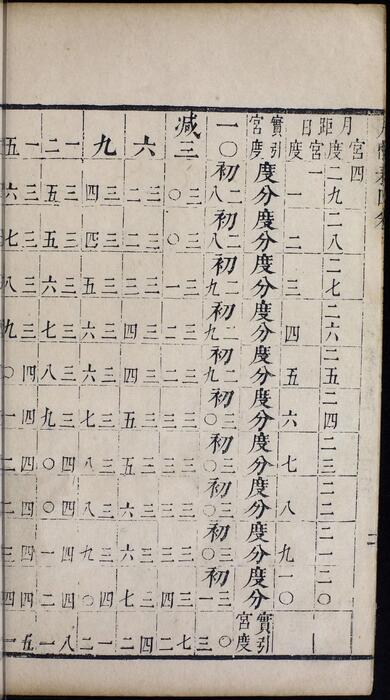 月距日
宮四
度 二九 二八 二七 二六 二五 二四 二三 二二 二一 二〇
宮一
度 一 二 三 四 五 六 七 八 九 一〇
實引宮度 度分 度分 度分 度分 度分 度分 度分 度分 度分 度分 實引宮度
一〇 初二八 初二八 初二九 初二九 初二九 初三〇 初三〇 初三〇 初三〇 初三一 三〇
減三 三〇 三〇 三一 三二 三二 三三 三三 三三 三三 三四 二七
六 三二 三二 三三 三四 三四 三五 三五 三六 三六 三七 二四
九 三四 三四 三五 三六 三六 三七 三八 三八 三九 四〇 二一
一二 三五 三五 三六 三七 三八 三九 四〇 四〇 四一 四二 一八
一五 三六 三七 三八 三九 四〇 四一 四二 四二 四三 四四 一五